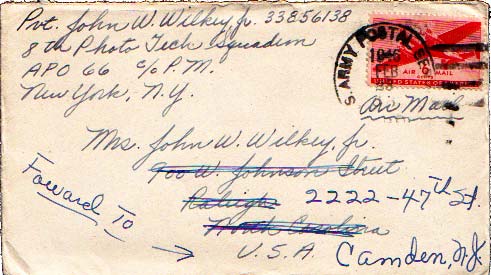 Pvt. John W. Wilkey, Jr. 33856138
8th Photo Tech Squadron
APO 66 c/o P.M.
New York, N.Y.
U.S. ARMY POSTAL SER
1945
FEB
AIR MAIL
UNITED STATES OF
Air Mail
Mrs. John W. Wilkey, Jr.
900 W. Johnson Street
Raleigh
North Carolina
U.S.A.
Foward To
2222-47th St.
Camden, N.J.